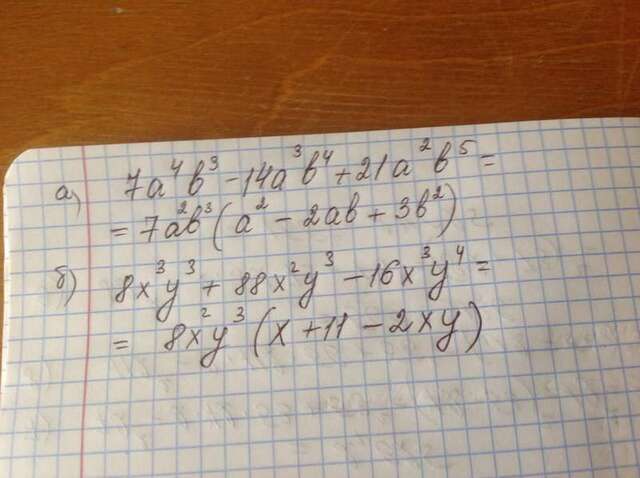 а) 7a⁴b³ - 14a³b⁴ + 21a²b⁵ =
= 7a²b³ (a² - 2ab + 3b²)
б) 8x³y³ + 88x²y³ - 16x³y⁴ =
= 8x²y³ (x + 11 - 2xy)